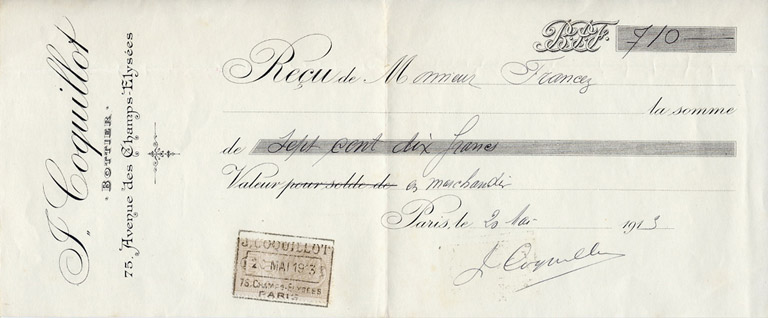 Jh Coquillot
BOTTIER
75, Avenue des Champs-Elysées
B.P.F. 710
Reçu de Monsieur Francez
la somme
de sept cent dix francs
Valeur pour solde de en marchandis
Paris, le 20 Mai 1913
J. COQUILLOT
20 MAI 1913
75. CHAMPS-ELYSEES
PARIS
J. Coquillot